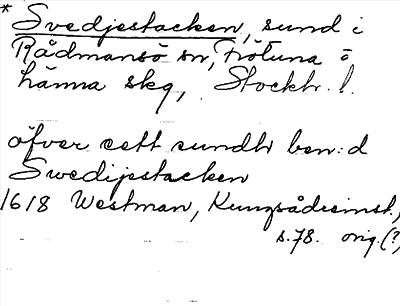 * Svedjestacken, sund i
Rådmansö sn, Frötuna o
Länna skg, Stockh. l.
öfver ett sundh ben:d
Swedijestacken
1618 Westman, Kungsådreinst.,
s. 78. orig. (?)